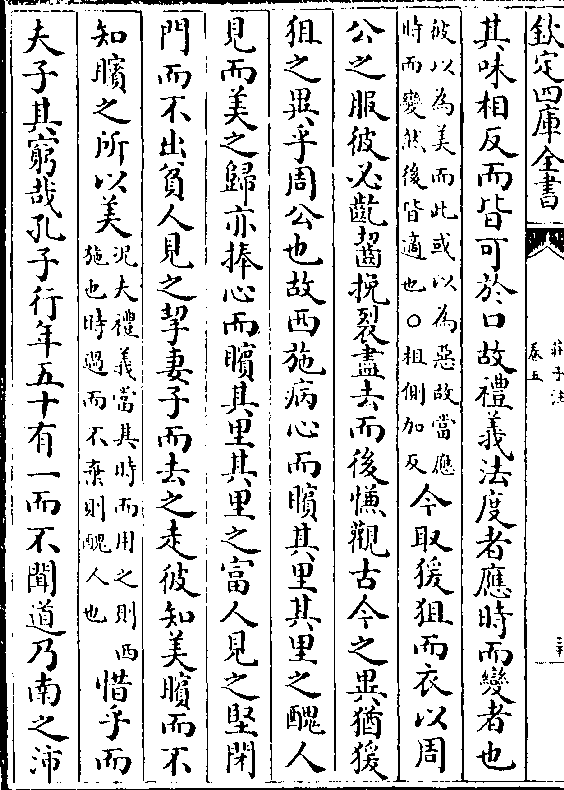 欽定四庫全書
莊子注
卷五
其味相反而皆可於口故禮義法度者應時而變者也
彼以為美而此或以為惡故當應
時而變然後皆適也○柤側加反
今取猨狙而衣以周
公之服彼必齕齧挽裂盡去而後慊觀古今之異猶猨
狙之異乎周公也故西施病心而矉其里其里之醜人
見而美之歸亦捧心而矉其里其里之富人見之堅閉
門而不出貧人見之挈妻子而去之走彼知美矉而不
知矉之所以美
況夫禮義當其時而用之則西
施也時過而不棄則醜人也
惜乎而
夫子其窮哉孔子行年五十有一而不聞道乃南之沛